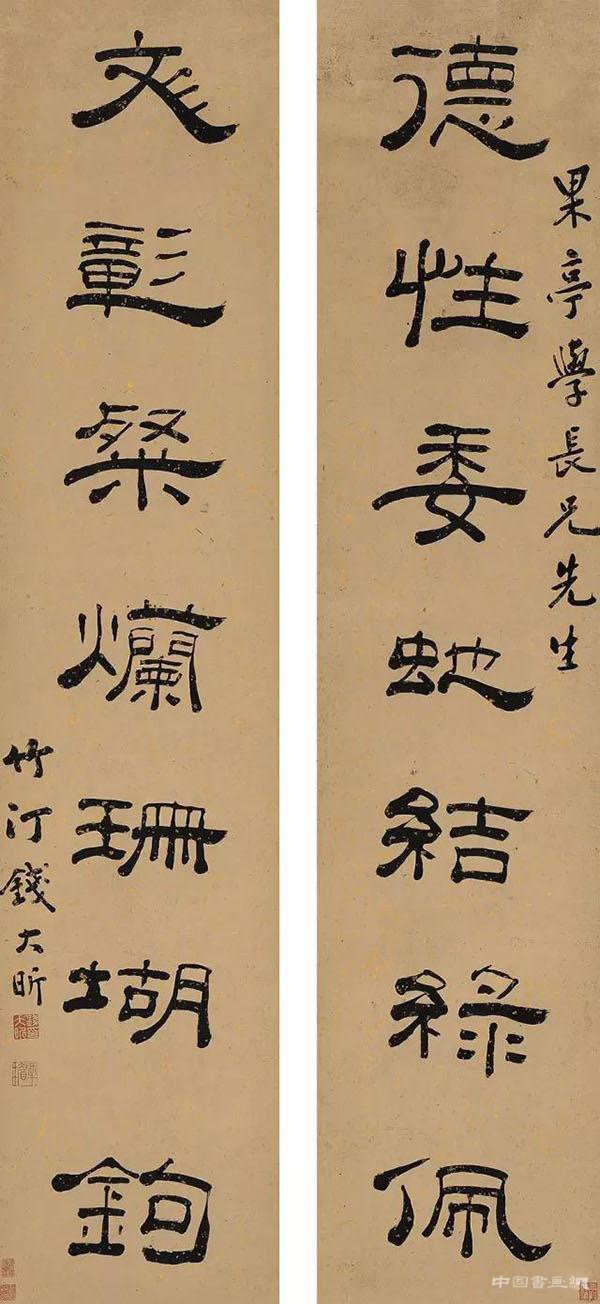 果亭學長兄先生
德性委虵結綠佩
彣彰粲爛珊瑚鉤
竹汀錢大昕
中國書画網